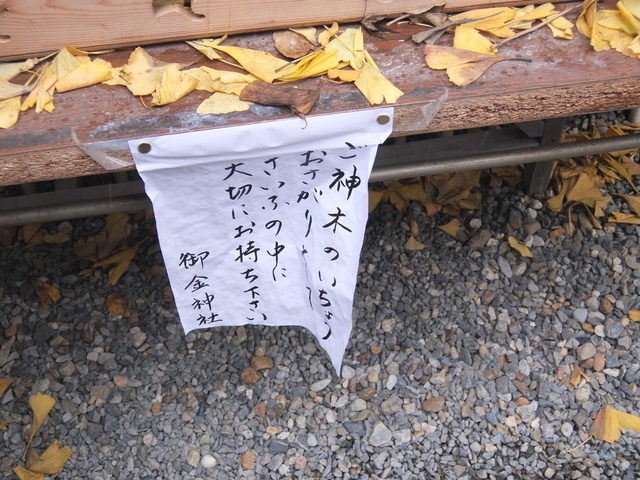 ご神木のいちょう
おさがりとして
さいふの中に
大切にお持ち下さい
御金神社